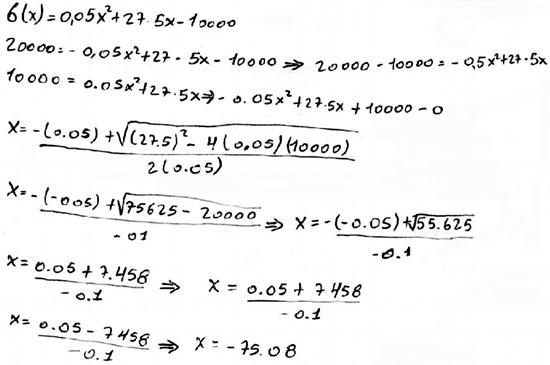 6(x)=0,05x²+27.5x-10000
20000=-0,05x²+27-5x-10000⇒ 20000-10000=-0,5x²+27-5x
10000=0.05x²+27.5x⇒-0.05x²+27.5x+10000-0
x=-(0.05)+√(27.5)²-4(0,05)(10000)
2(0.05)
x=-(-005)+√75625-20000 ⇒ x=-(-0.05)+√55.625
-01 -0.1
x=0.05+7.458 ⇒ x=0.05+7458
-0.1 -0.1
x=0.05-7458 ⇒ x=-75.08
-0.1